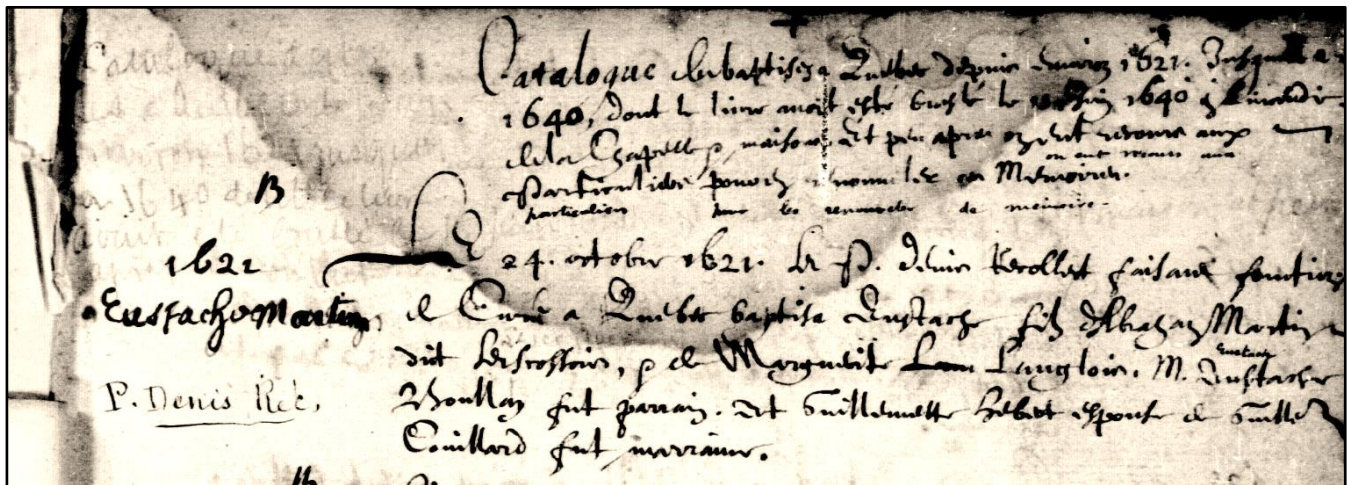 Catalogue des baptisez a Quebec depuis environ 1621. Jusques a
1640, dont le livre avoit esté bruslé le Juin 1640 en l'incendie
de la Chapelle maison Et peu apres on eut recours aux
on eut recours aux
Particuliers pour renouveler ces Memoires.
particuliers pour les renouveler de memoire.
B
1621
Le 24. octobre 1621. Le P. Denis Recollect faisant fonction
Eustache Martin
de Curé a Quebec baptisa Eustache fils d'Abraham Martin
dict Lescossois, & de Marguerite Langlois. M. Eustache
Eustache
P. Denis Réc.
Boullay fut parrain. Et Guillemette Hebert espouse de Guille
Couillard fut marraine.